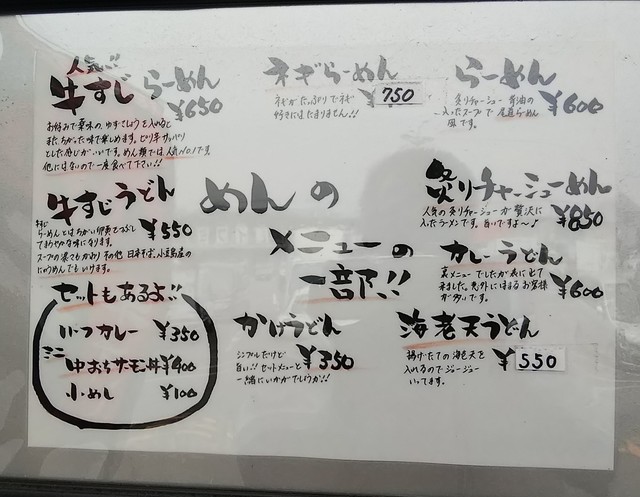 人気!!
牛すじらーめん
¥650
お好みで薬味の、ゆずこしょうを入れると
また、ちがった味で楽しめます。ピリ辛サッパリ
とした感じがいいです。めん類では人気No.1です。
他にはないので一度食べて下さい!!
ネギらーめん
¥750
ネギがたっぷりでネギ
好きにはたまりません!!
らーめん
¥600
炙りチャーシュー 背油の
入ったスープで尾道らーめん
風です。
牛すじうどん
¥550
らーめんとはちがい卵黄をおとし
てまろやかな味になります。
めんの
メニューの
一部!!
炙りチャーシューめん
¥850
人気の炙りチャーシューが贅沢に
入ったラーメンです。旨いですよ〜♪
カレーうどん
¥600
裏メニューでしたが表に出て
来ました。意外にはまるお客様
が多いです。
セットもあるよ!!
ミニ
いつカレー ¥350
中おちサーモン丼 ¥400
小めし ¥100
かけうどん
¥350
シンプルだけど
旨い!! セットメニューと
一緒にいかがでしょうか!!
海老天うどん
¥550
揚げたての海老天を
入れるのでジュージュー
いってます。